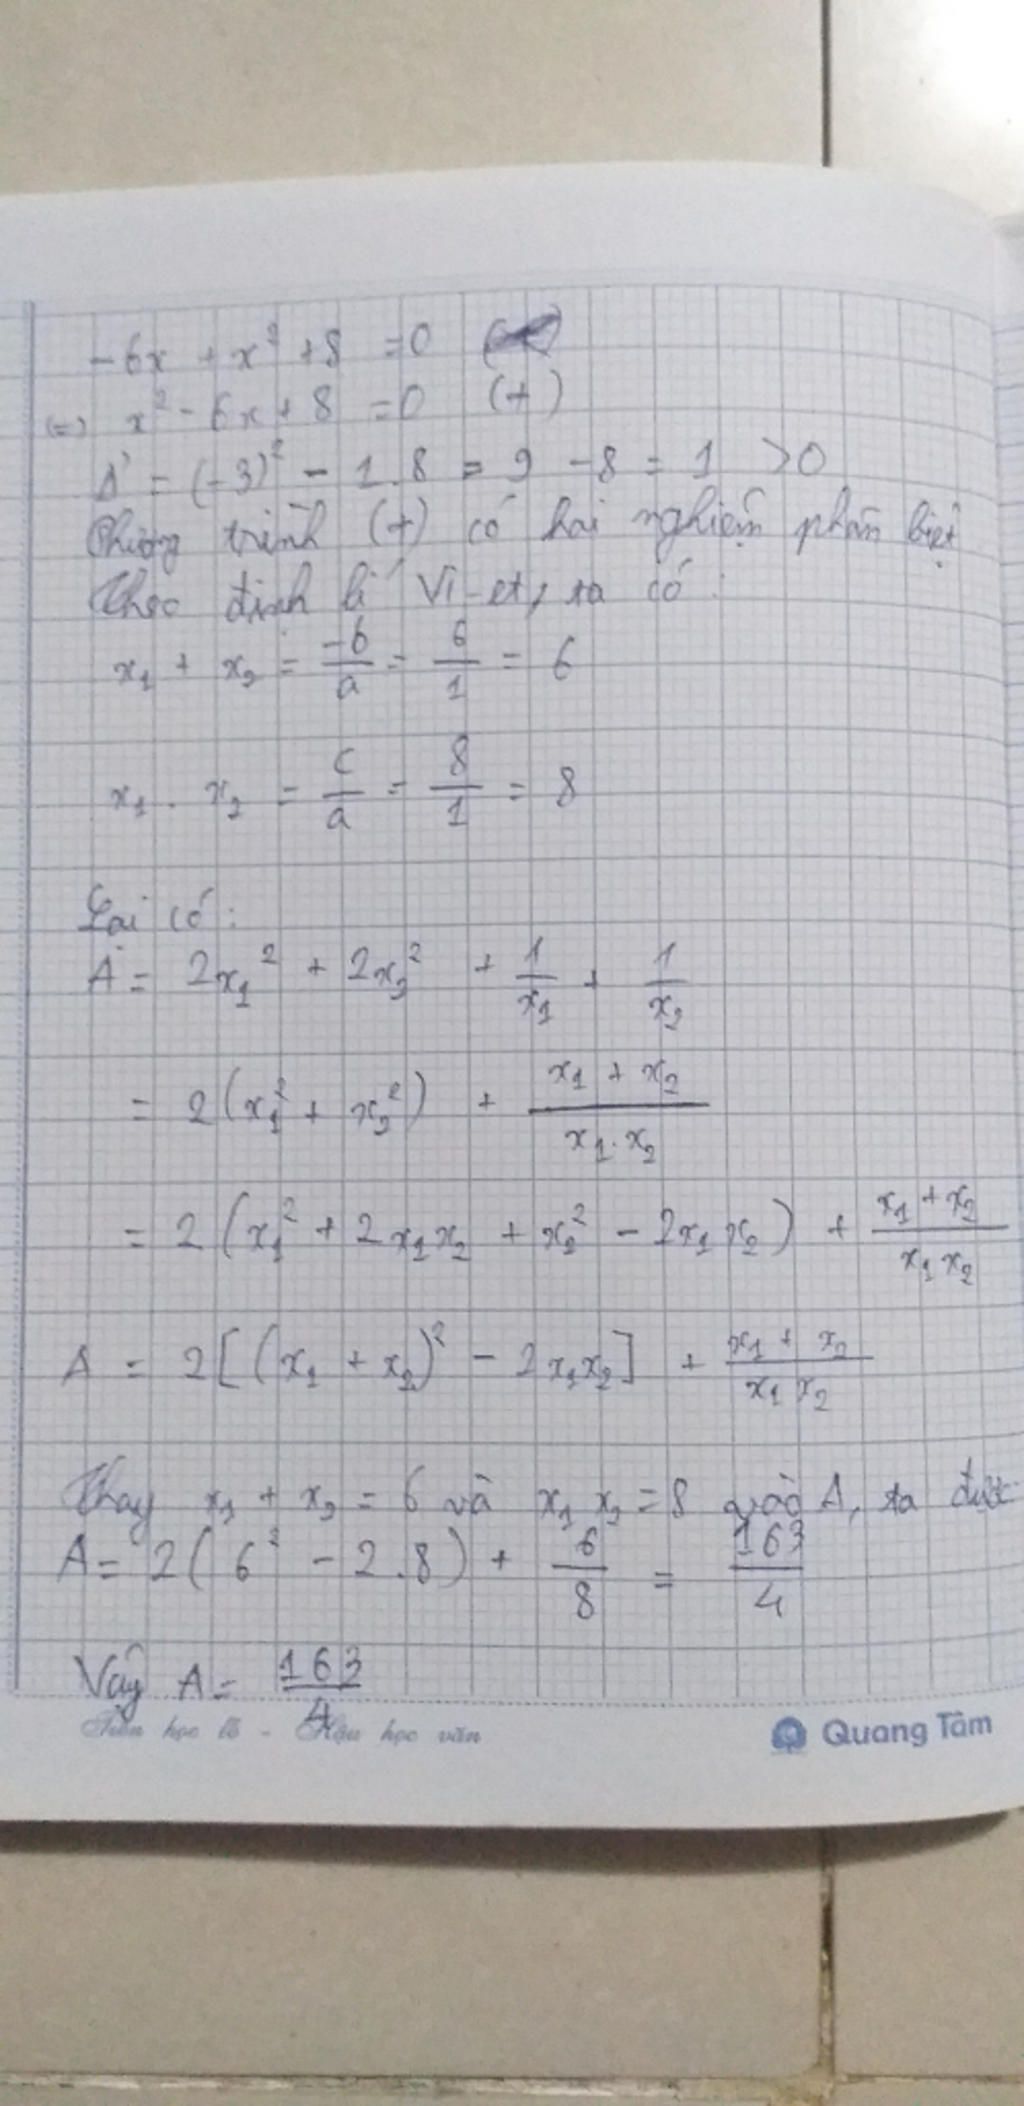 -6x + x² + 8 = 0
(=) x² - 6x + 8 = 0 (+)
Δ' = (-3)² - 1.8 = 9 - 8 = 1 > 0
Phương trình (+) có hai nghiệm phân biệt
Theo định lí Vi-et, ta có:
x₁ + x₂ = -b/a = 6/1 = 6
x₁ . x₂ = c/a = 8/1 = 8
Lại có:
A = 2x₁² + 2x₂² + 1/x₁ + 1/x₂
= 2(x₁² + x₂²) + (x₁ + x₂)/(x₁.x₂)
= 2(x₁² + 2x₁x₂ + x₂² - 2x₁x₂) + (x₁ + x₂)/(x₁x₂)
A = 2[(x₁ + x₂)² - 2x₁x₂] + (x₁ + x₂)/(x₁x₂)
Thay x₁ + x₂ = 6 và x₁x₂ = 8 vào A, ta được
A = 2(6² - 2.8) + 6/8 = 163/4
Vậy A = 163/4
Tiên học lễ - Hậu học văn
Quang Tâm